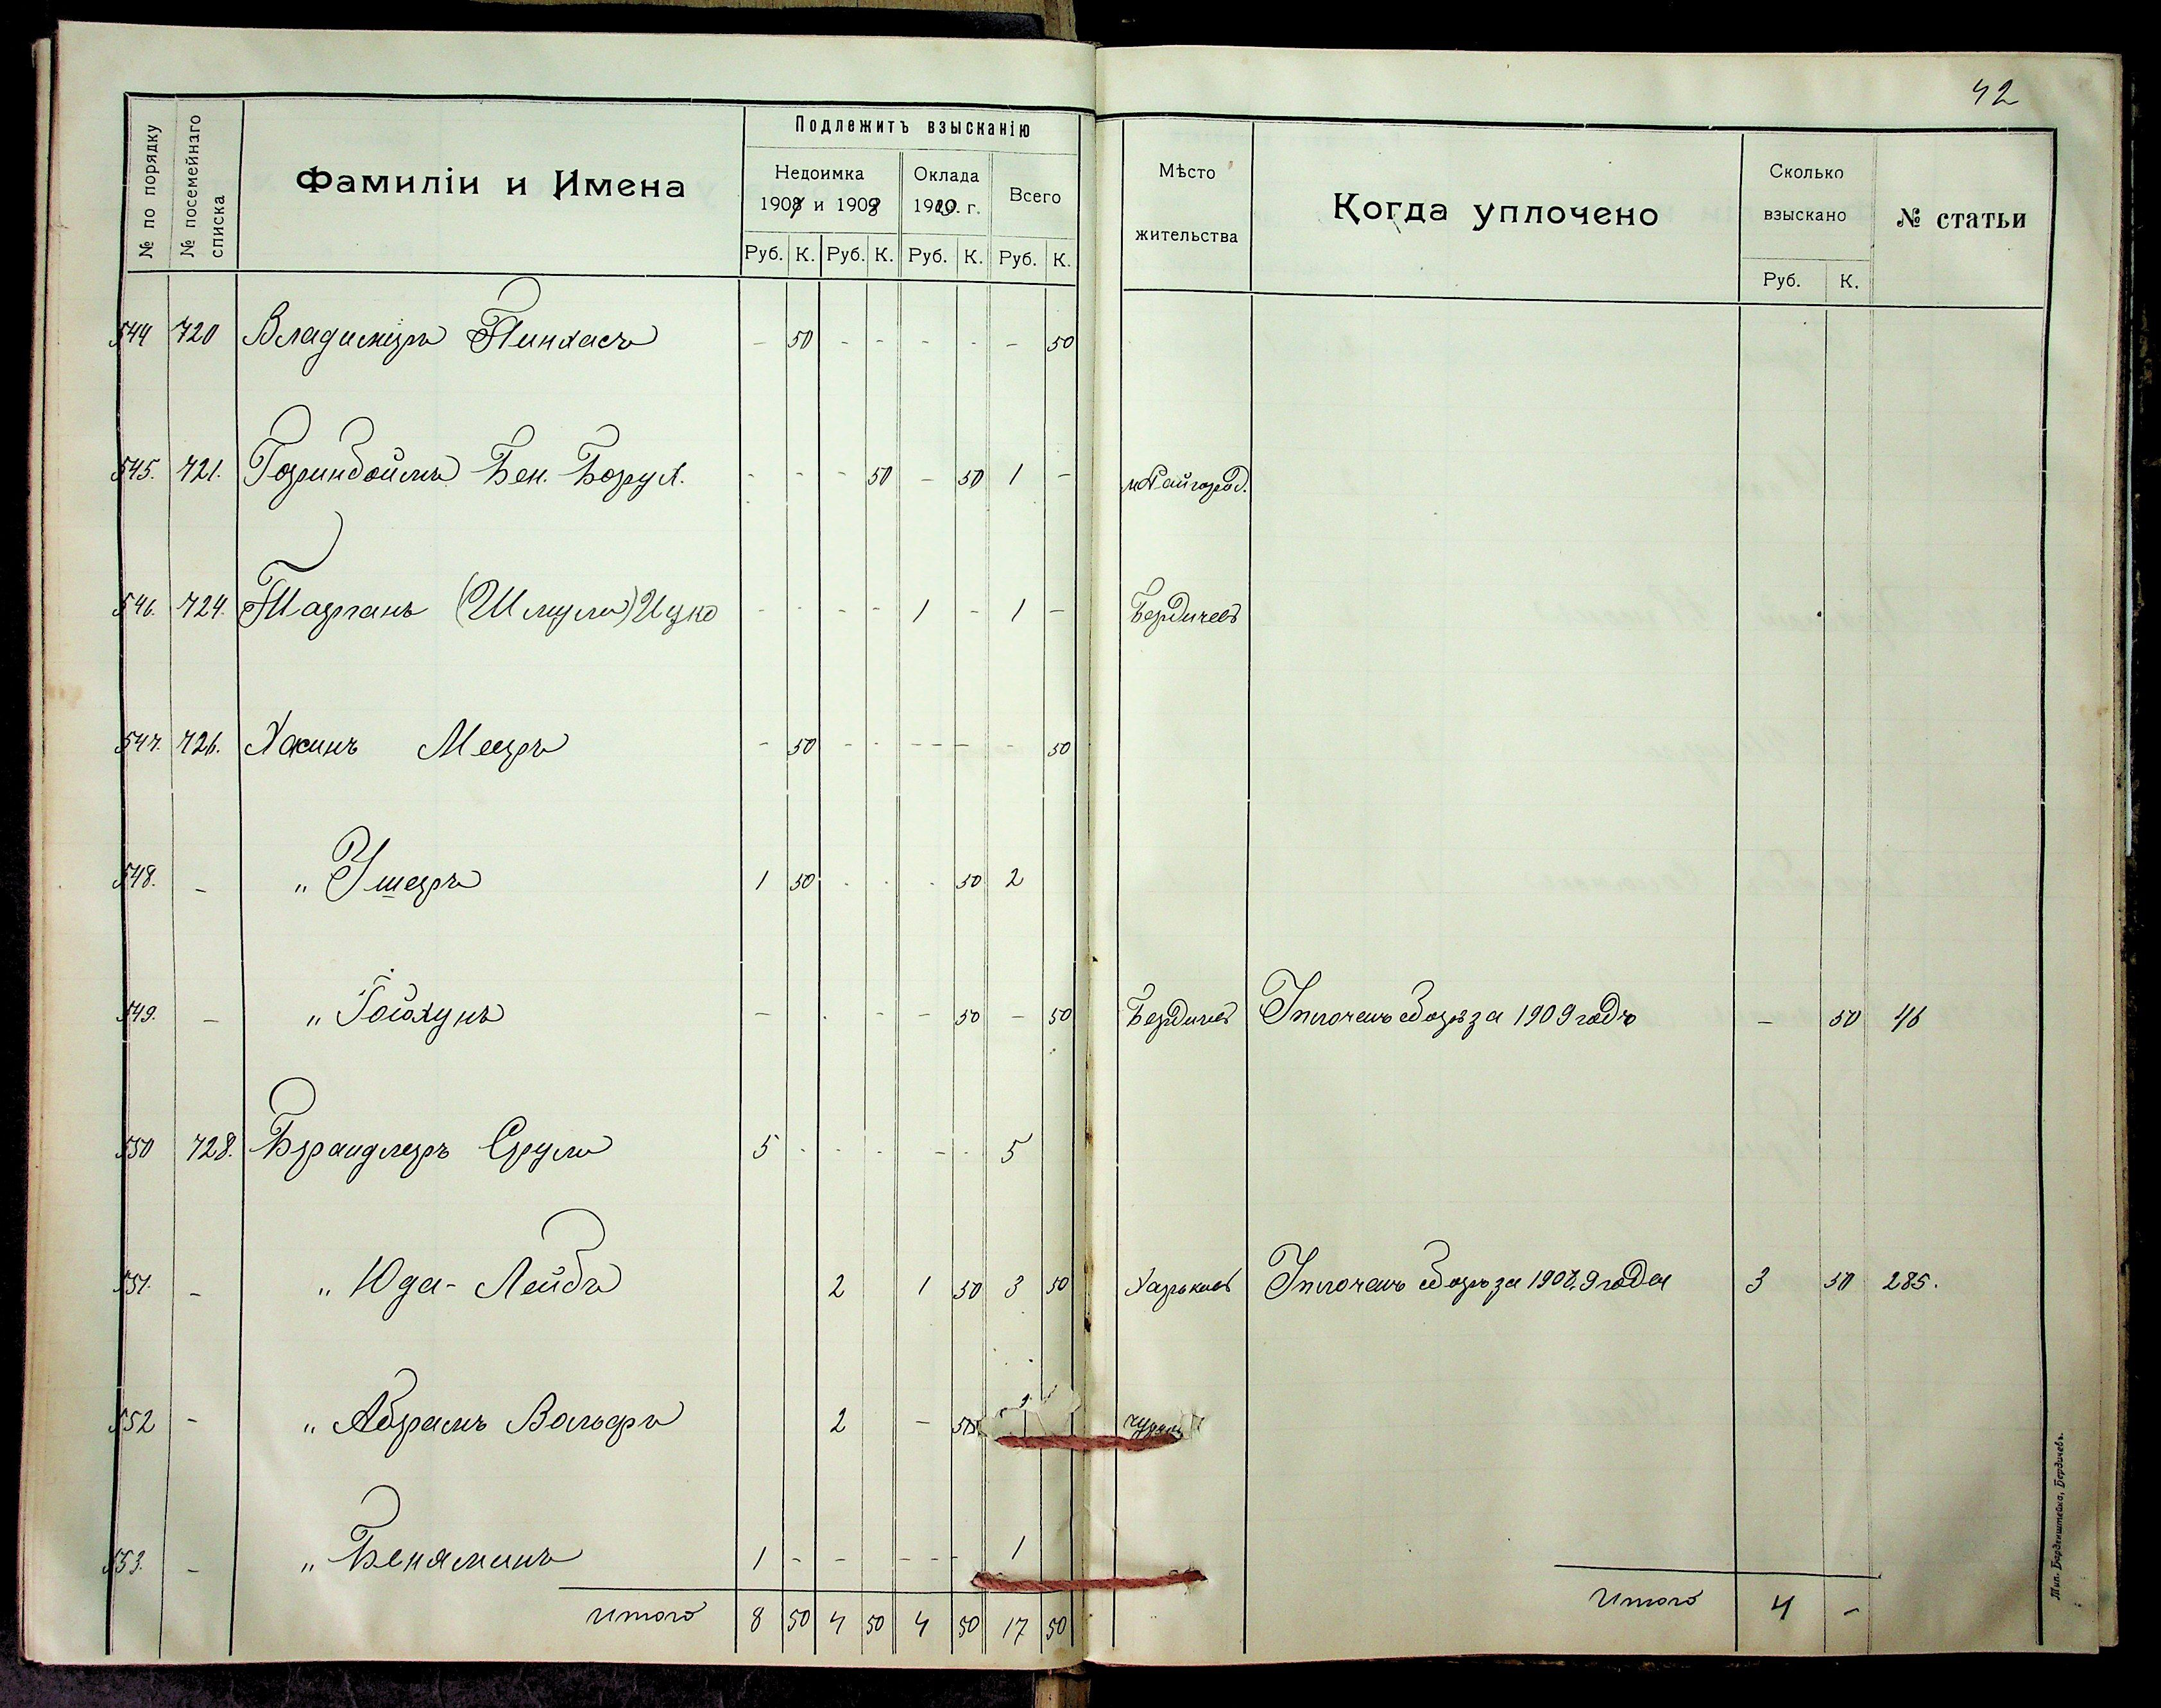 42
№ по порядку
№ посемейнаго списка
Фамиліи и Имена
Подлежитъ взысканію
Недоимка
1908 и 1908
Оклада
1909. г.
Всего
Руб. К. Руб. К. Руб. К. Руб. К.
Мѣсто
жительства
Когда уплочено
Сколько
взыскано
Руб. К.
№ статьи
544 720 Владимиръ Пинхасъ - 50 - - - - - 50
545. 721. Гринбоймъ Бен. Борух. - - - 50 - 50 1 - м. Райгород.
546. 724. (Шмуль) Ицко - - - - 1 - 1 - Бердичевъ
547. 726. Хасинъ Мееръ - 50 - - - - - 50
548. - " Ушеръ 1 50 - - - 50 2
549. - " - - - - 50 - 50 Бердичевъ Уплоченъ сборъ за 1909 годъ - 50 46
550 728. Брандлеръ Сруль 5 - - - - - 5
551. - " Юда-Лейбъ 2 1 50 3 50 Харьковъ Уплоченъ сборъ за 1908.9 года 3 50 285.
552 - " Абрамъ Вольфъ 2 - 50
553. - " Беняминъ 1 - - - - - 1
Итого 8 50 4 50 4 50 17 50
Итого 4 -
Тип. Берденштейна, Бердичевъ.